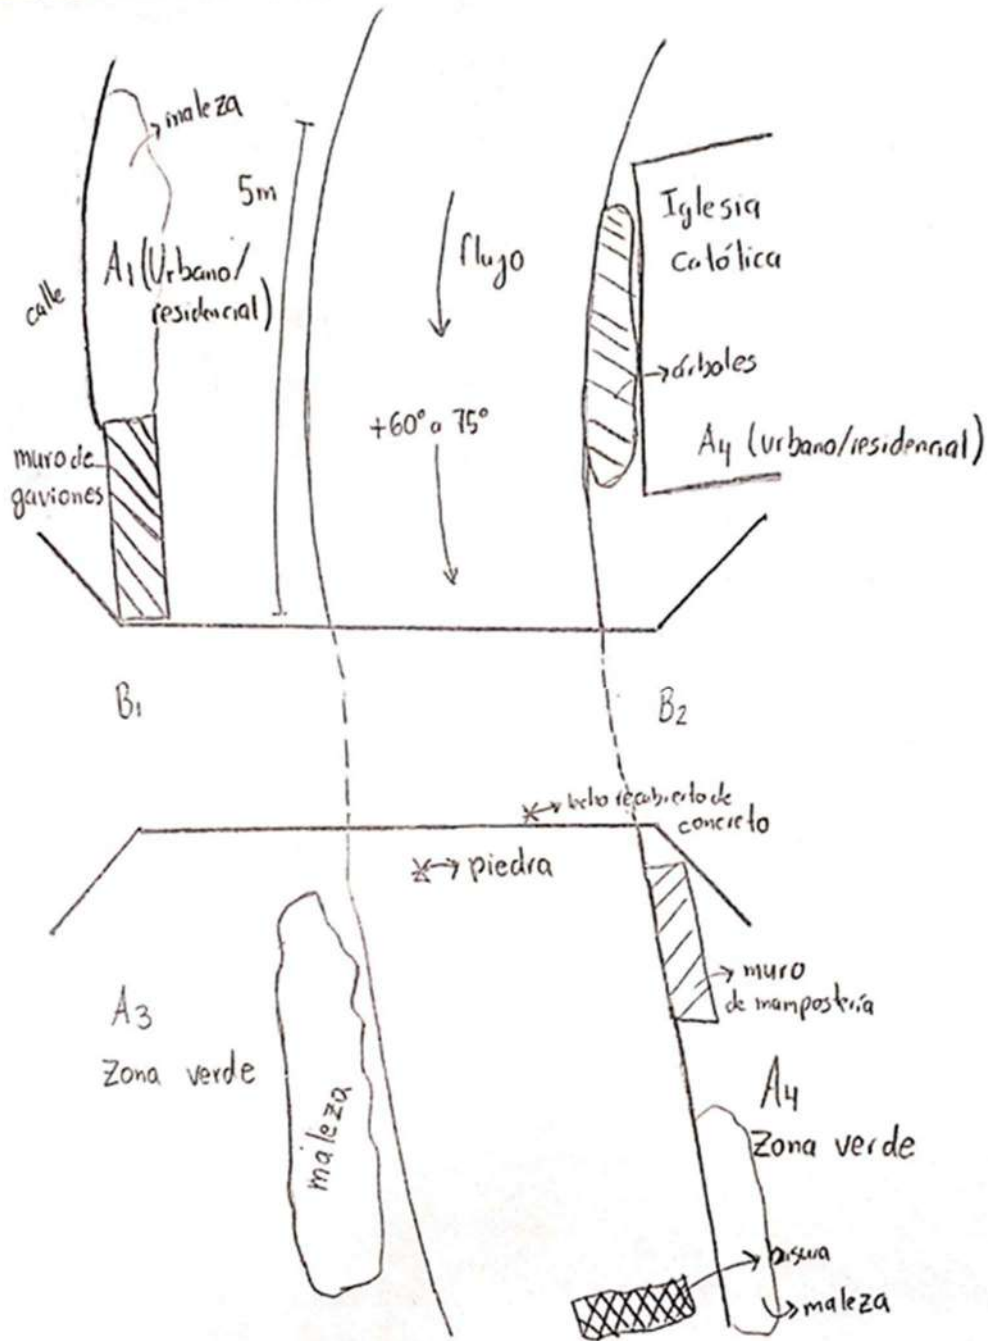 maleza
5m
A1 (Urbano/
residencial)
calle
flujo
Iglesia
Católica
árboles
+60° a 75°
A4 (urbano/residencial)
muro de
gaviones
B1
B2
lecho recubierto de
concreto
piedra
muro
de mampostería
A3
Zona verde
maleza
A4
Zona verde
basura
maleza